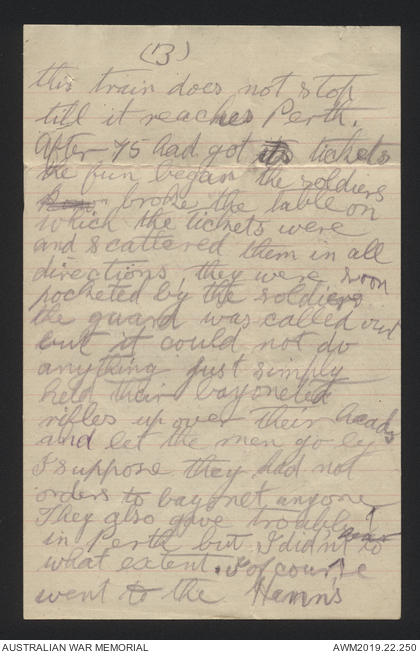 (13)
this train does not stop
till it reaches Perth.
After 75 had got its tickets
the fun began the soldiers
broke the table on
which the tickets were
and scattered them in all
directions, they were soon
pocketed by the soldiers
the guard was called out
but it could not do
anything just simply
held their bayoneted
rifles up over their heads
and let the men go by
I suppose they had not
orders to bayonet anyone
They also gave trouble
in Perth but I didn't hear to
what extent. I of course
went to the Henns
AUSTRALIAN WAR MEMORIAL
AWM2019.22.250